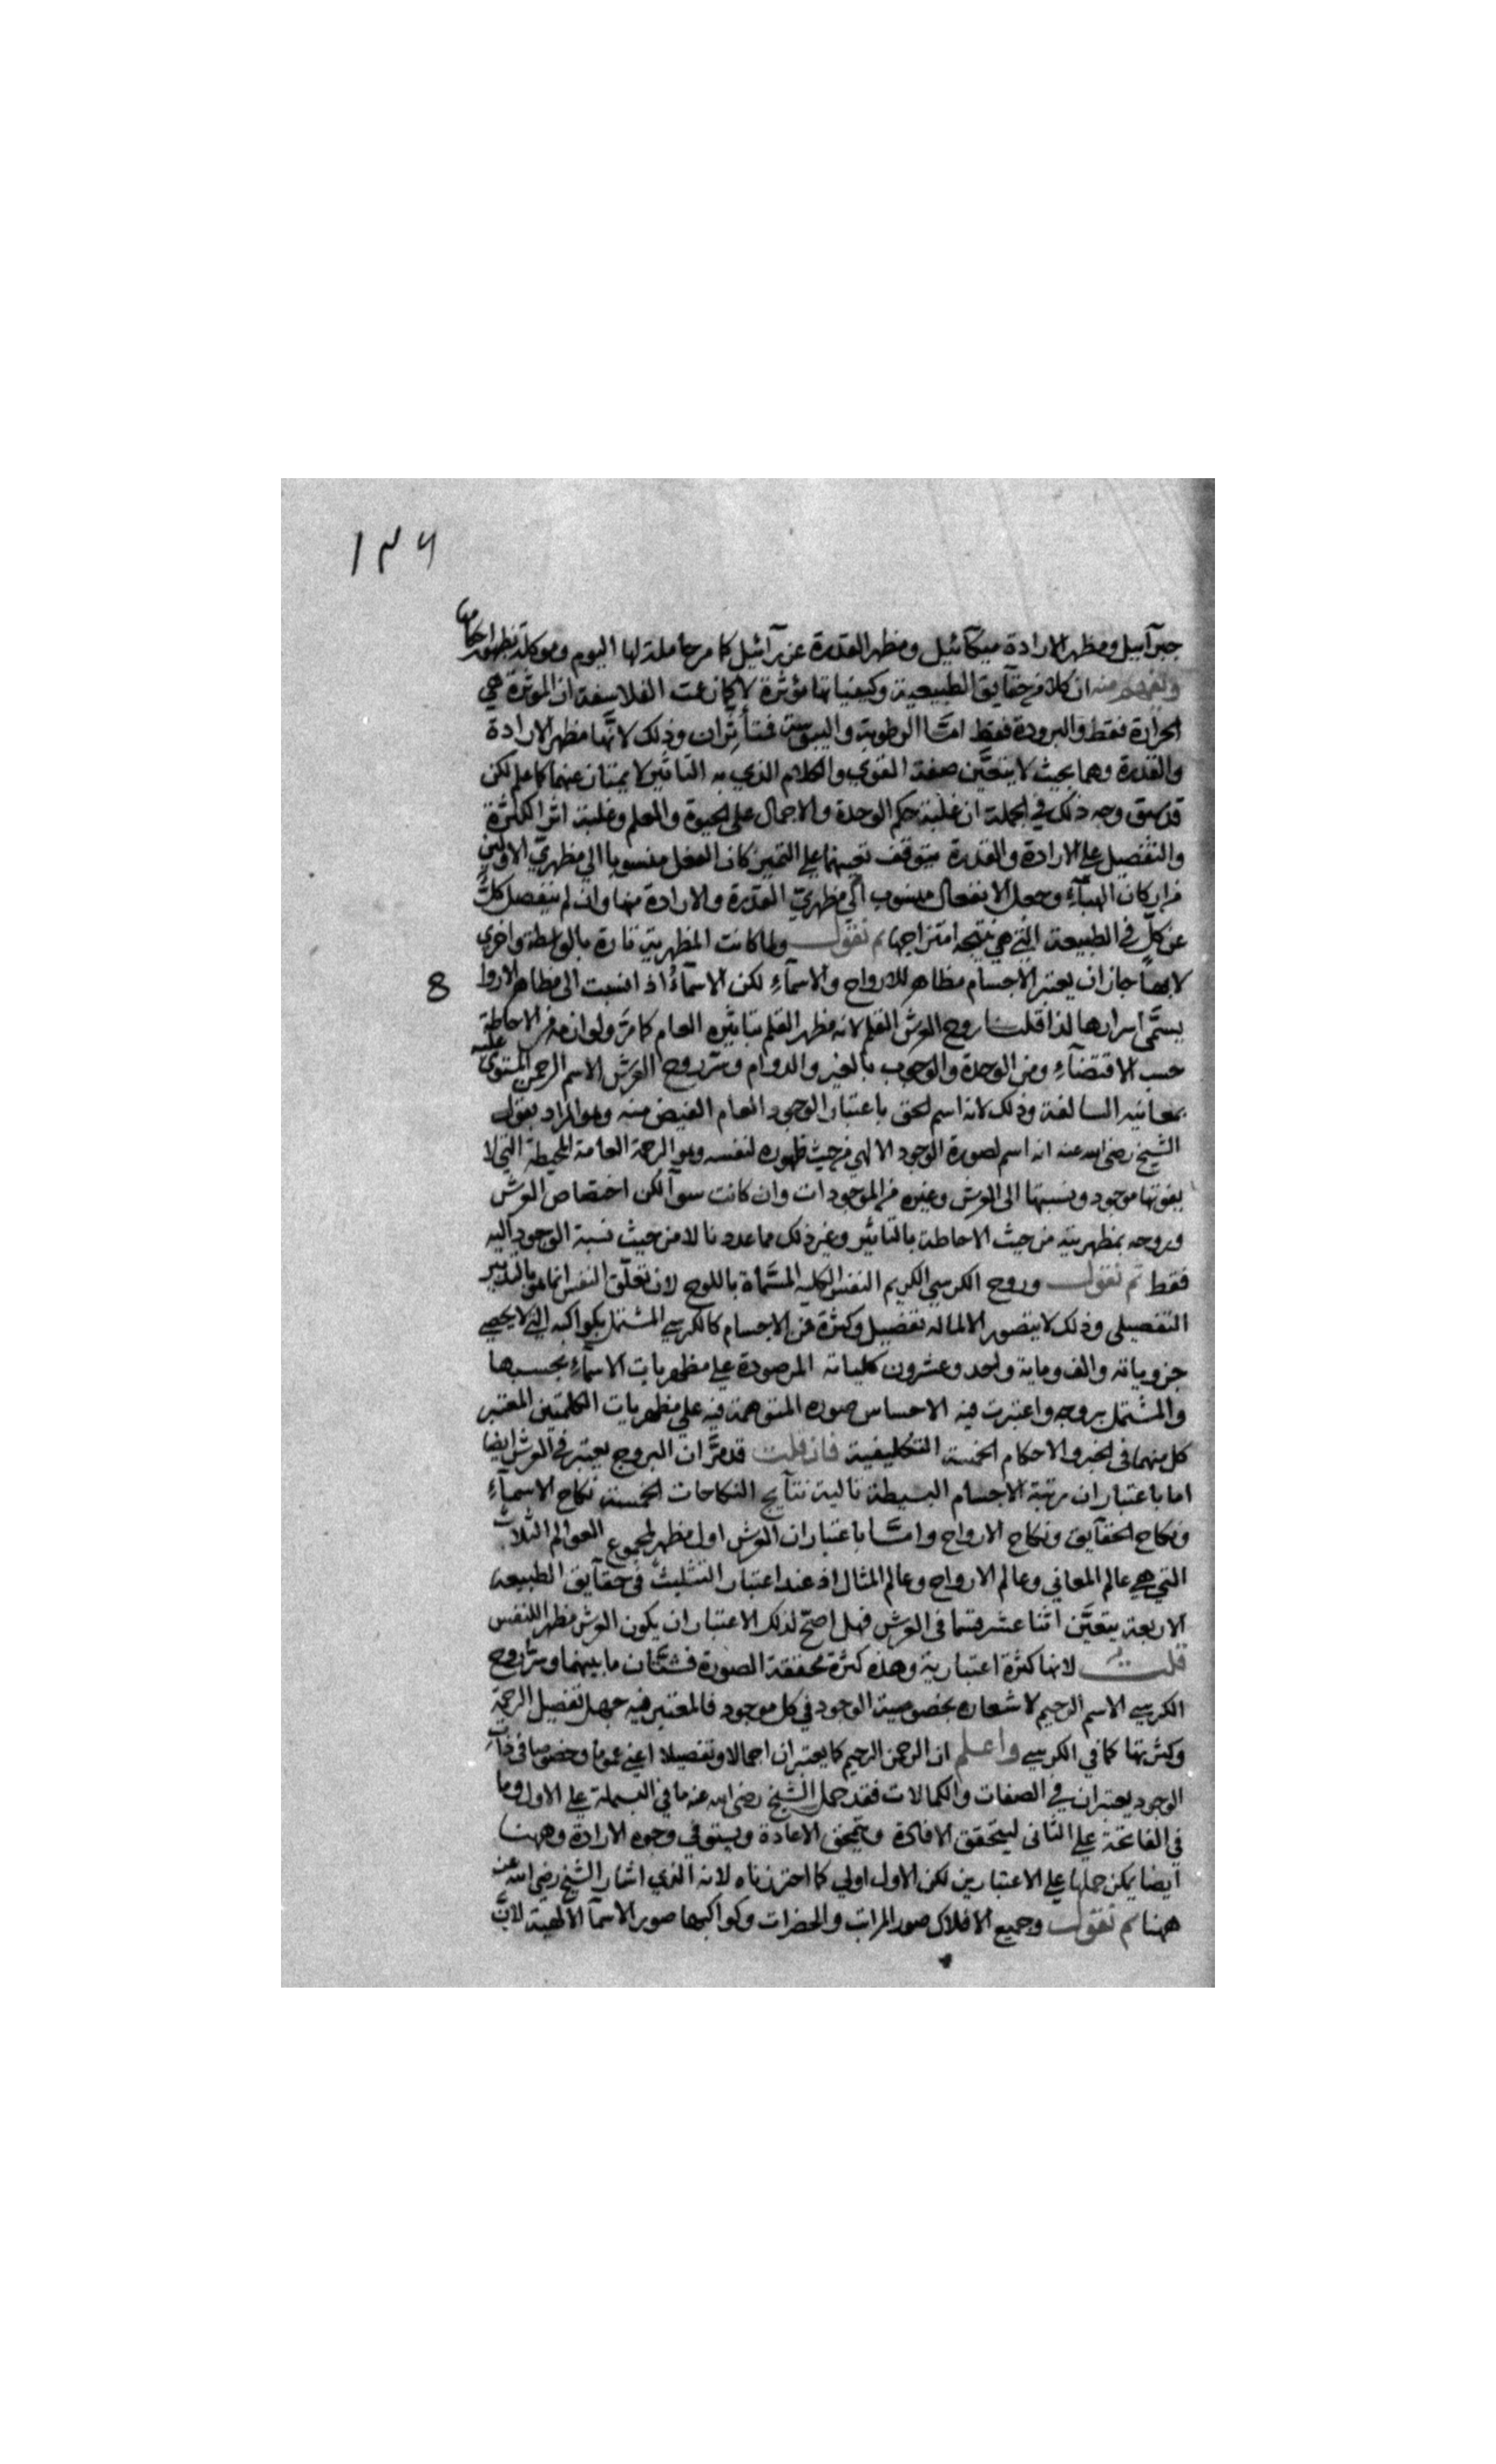 ١٣٦
جبرآئيل ومظهر الارادة ميكآئيل ومظهر القدرة عزرآئيل كما مرحاملة لها اليوم وموكلة بظهور احكامها
ويفهم منه ان كلا من حقآيق الطبيعية وكيفياتها مؤثرة لا كما زعمت الفلاسفة ان المؤثرة هي
الحرارة فقط والبرودة فقط امّا الرطوبة واليبوسة فمتأثران وذلك لانّهما مظهر الارادة
والقدرة وهما بحيث لا يتعيّن صفة القوي والكلام الذي به التاثير لا يمتازان عنهما كما علم لكن
قد سبق وجه ذلك في الجملة ان غلبة حكم الوحدة والاجمال على الحيوة والعلم وغلبة اثر الكثرة
والتفصيل على الارادة والقدرة يتوقف تعينهما على التميز كان الفعل منسوبا الي مظهريّ الاولين
من اركان الهبآء وجعل الانفعال منسوب الي مظهريّ القدرة والارادة منها وان لم ينفصل كلّ
عن كلّ في الطبيعة التي هي نتيجة امتزاجها ثم نقول ولما كانت المظهرية تارة بالواسطة واخري
لا بها جاز ان يعتبر الاجسام مظاهر للارواح والاسمآء لكن الاسمآء اذا نسبت الى مظاهر الارواح
8
يسمّى اسرارها لذا قلنا روح العرش القلم لانه مظهر القلم بتاثيره العام كما مرّ ولوازمه من الاحاطة
حسب الاقتضآء ومن الوحدة والوجوب بالغير والدوام وسرّ روح العرش الاسم الرحمن المستوى عليه
بمعانيه السالفة وذلك لانه اسم للحق باعتبار الوجود العام الفيض منه وهو المراد بقول
الشيخ رضى الله عنه انه اسم لصورة الوجود الالهي من حيث ظهوره لنفسه وهو الرحمة العامة المحيطة التي لا
يفوتها موجود ونسبتها الى العرش وغيره من الموجودات وان كانت سوآ لكن اختصاص العرش
وروحه بمظهريته من حيث الاحاطة بالتاثير وغير ذلك مما عددنا لا من حيث نسبة الوجود اليه
فقط ثم نقول وروح الكرسي الكريم النفس الكلية المسمّاة باللوح لان تعلّق النفس انما هو بالتدبير
التفصيلى وذلك لا يتصور الا لما له تفصيل وكثرة من الاجسام كالكرسي المشتمل بكواكبه التي لا يحصي
جزوياته والف وماية واحد وعشرون كلياته المرصودة على مظهريات الاسمآء بحسبها
والمشتمل بروجه واعتبرت فيه الاحساس صوره المتوهمة فيه على مظهريات الكلمتين المعتبر
كل منهما فى الخبر والاحكام الخمسة التكليفية فان قلت قد مرّ ان البروج يعتبر في العرش ايضا
اما باعتبار ان مرتبة الاجسام البسيطة تالية نتآيج النكاحات الخمسة نكاح الاسمآء
ونكاح الحقآيق ونكاح الارواح وامّا باعتبار ان العرش اول مظهر لمجموع العوالم الثلاث
التي هي عالم المعاني وعالم الارواح وعالم المثال اذ عند اعتبار التثليث فى حقآيق الطبيعة
الاربعة يتعيّن اثنا عشر قسما فى العرش فهل اصحّ لذلك الاعتبار ان يكون العرش مظهر اللنفس
قلت لانها كثرة اعتبارية وهذه كثرة محققة الصورة فشتّان ما بينهما وسرّ روح
الكرسي الاسم الرحيم لاشعاره بخصوصية الوجود في كل موجود فالمعتبر فيه جهل تفصيل الرحمة
وكثرتها كما في الكرسي واعلم ان الرحمن الرحيم كما يعتبران اجمالا وتفصيلا اعني عموما وخصوصا فى ذات
الوجود يعتبران في الصفات والكمالات فقد حمل الشيخ رضى الله عنه ما في البسملة على الاول وما
في الفاتحة على الثانى ليتحقق الافادة ويتمحق الاعادة ويستوفي وجوه الارادة وههنا
ايضا يمكن حملها على الاعتبارين لكن الاول اولي كما اخترناه لانه الذي اشار الشيخ رضى الله عنه
ههنا ثم نقول وجميع الافلاك صور المراتب والحضرات وكواكبها صور الاسمآ الالهية لانّ